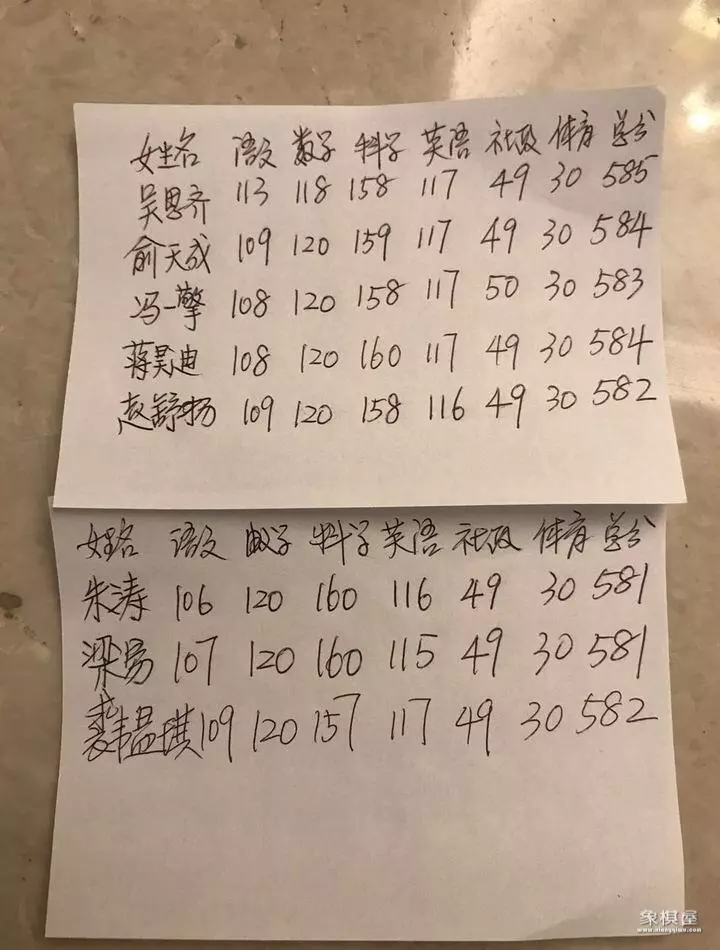 姓名 语文 数学 科学 英语 社政 体育 总分
吴思齐 113 118 158 117 49 30 585
俞天成 109 120 159 117 49 30 584
冯一擎 108 120 158 117 50 30 583
蒋昊迪 108 120 160 117 49 30 584
赵舒扬 109 120 158 116 49 30 582
姓名 语文 数学 科学 英语 社政 体育 总分
朱涛 106 120 160 116 49 30 581
梁易 107 120 160 115 49 30 581
裘韫琪 109 120 157 117 49 30 582
象棋屋
www.xiangqiwu.com